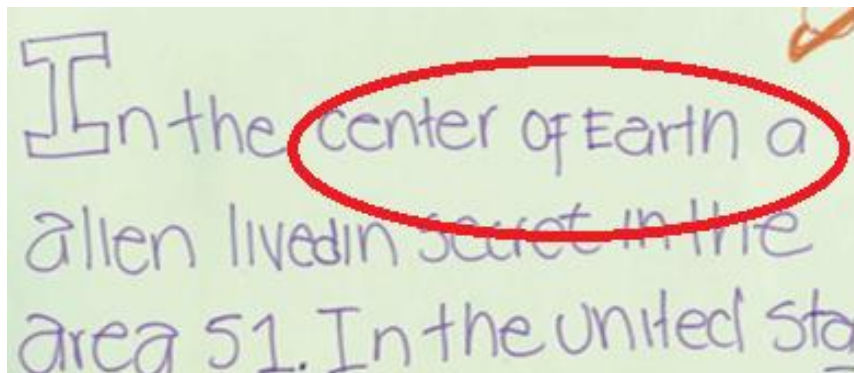 In the center of Earth a
alien lived in secret in the
area 51. In the united sta